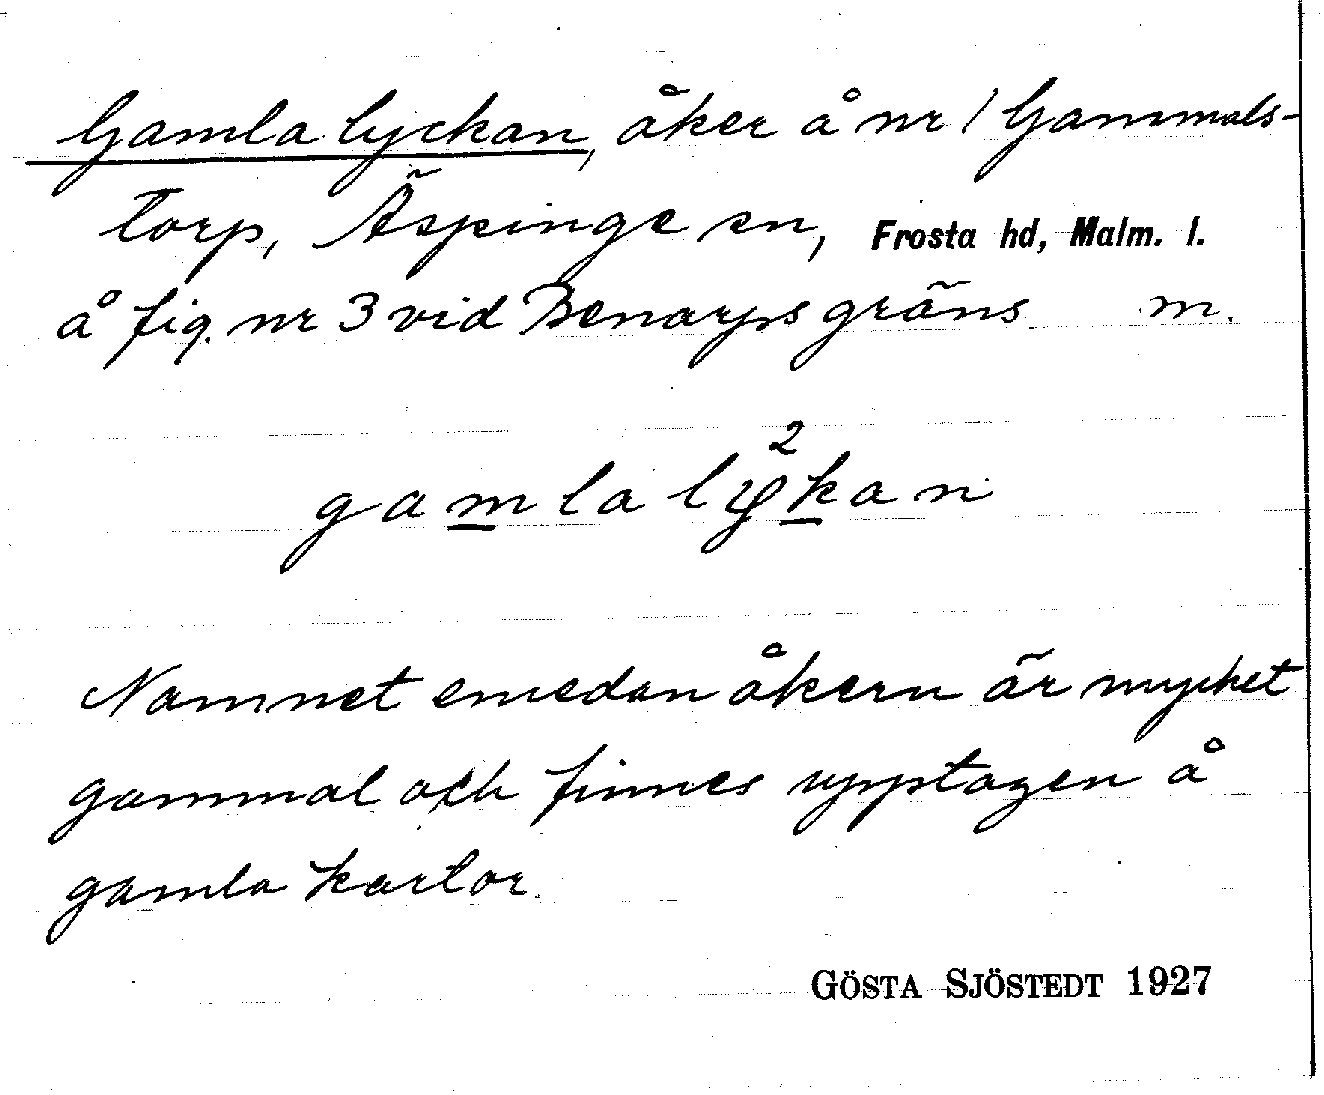 Gamla lyckan, åker å nr 1 Gammals-
torp, Äspinge sn, Frosta hd, Malm. l.
å fig. nr 3 vid Benarps gräns m.
2
gamla lykan
Namnet emedan åkern är mycket
gammal och finnes upptagen å
gamla kartor.
GÖSTA SJÖSTEDT 1927